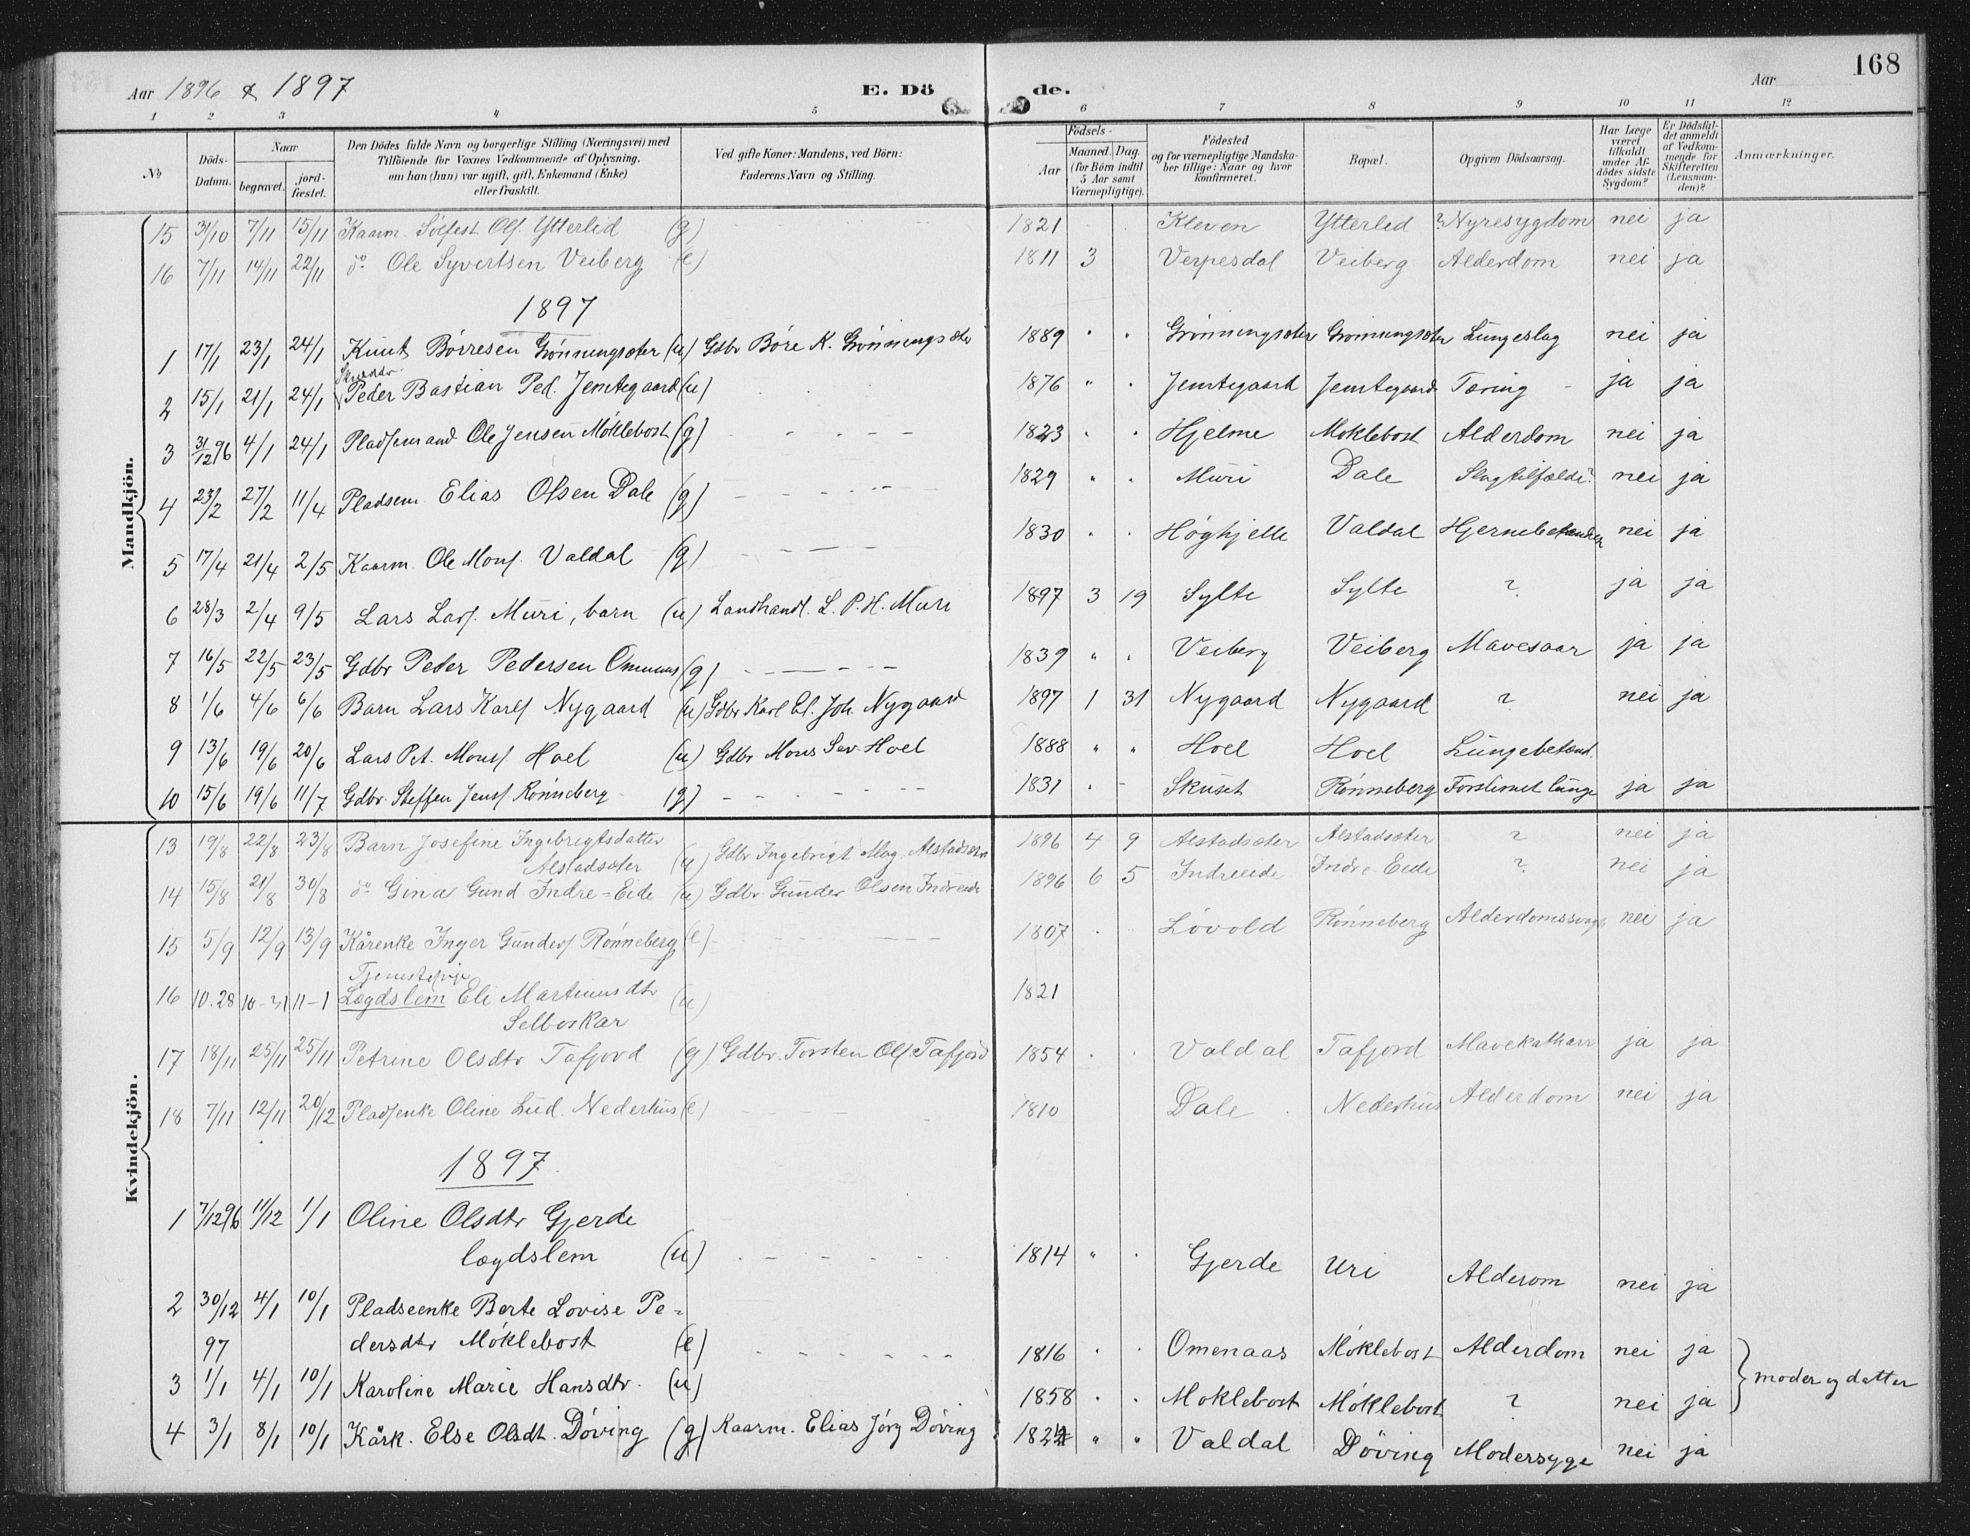 168
Aar 1896 & 1897 E. Dö de. Aar
1 2 3 4 5 6 7 8 9 10 11 12
№ Döds-Datum. Naar begravet. jordfæstet. Den Dödes fulde Navn og borgerlige Stilling (Næringsvei) med Tilföiende for Voxnes Vedkommende af Oplysning, om han (hun) var ugift, gift, Enkemand (Enke) eller fraskilt. Ved gifte Koner: Mandens, ved Börn: Faderens Navn og Stilling. Födsels- Aar Maaned. Dag. (for Börn indtil 5 Aar samt Værnepligtige). Födested og for værnepligtige Mandskaber tillige: Naar og hvor konfirmeret. Bopæl. Opgiven Dödsaarsag. Har Læge været tilkaldt under Afdödes sidste Sygdom? Er Dödsfaldet anmeldt af Vedkommende for Skifteretten (Lensmanden)? Anmærkninger.
Mandkjön.
15 31/10 7/11 15/11 Kaarm. Sölfest Ols. Ytterlid (g) 1821 Kleven Ytterlid ? Nyresygdom nei ja
16 7/11 14/11 22/11 do Ole Syvertsen Veiberg (e) 1811 3 Verpesdal Veiberg Alderdom nei ja
1897
1 17/1 23/1 24/1 Knut Börresen Grönningsæter (u) Gdbr Böre K. Grönningsæter 1889 " " Grönningsæter Grönningsæter Lungeslag nei ja
2 15/1 21/1 24/1 Peder Bastian Ped. Jemtegaard (u) 1876 " " Jemtegaard Jemtegaard Tæring ja ja
3 31/12 96 4/1 24/1 Pladsemand Ole Jensen Möklebost (g) 1823 " " Hjelme Moklebost Alderdom nei ja
4 23/2 27/2 11/4 Pladsem Elias Olsen Dale (g) 1829 " " Muri Dale Slagtilfælde? nei ja
5 17/4 21/4 2/5 Kaarm Ole Mons. Valdal (g) 1830 " " Höghjelle Valdal nei ja
6 28/3 2/4 9/5 Lars Lars. Muri, barn (u) Landhandl. L. P. H. Muri 1897 3 19 Sylte Sylte ? ja ja
7 16/5 22/5 23/5 Gdbr Peder Pedersen (g) 1839 " " Veiberg Veiberg Mavesaar ja ja
8 1/6 4/6 6/6 Barn Lars Karls Nygaard (u) Gdbr Karl El. Joh. Nygaard 1897 1 31 Nygaard Nygaard ? nei ja
9 13/6 19/6 20/6 Lars Pet. Mons Hoel (u) Gdbr Mons Sev. Hoel 1888 " " Hoel Hoel Lungebetænd.
10 15/6 19/6 11/7 Gdbr. Steffen Jens Rönneberg (g) 1831 " - Skuset Rönneberg Forslimet lunge ja ja
Kvindekjön.
13 19/8 22/8 23/8 Barn Josefine Ingebrigtsdatter
Alstadsæter (u) Gdbr Ingebrigt Mag. Alstadsæter 1896 4 9 Alstadsæter Alstadsæter ? nei ja
14 15/8 21/8 30/8 do Gina Gund Indre-Eide (u) Gdbr Gunder Olsen Indreeide 1896 6 5 Indreeide Indre-Eide ? nei ja
15 5/9 12/9 13/9 Kårenke Inger Gunders. Rönneberg (e) 1807 Lövold Rönneberg nei ja
16 10.28 10-31 11-1 Lægdslem Eli Martinusdtr (u) 1821
Selboskar
17 18/11 25/11 25/11 Petrine Olsdtr Tafjord (g) Gdbr. Torsten Ols Tafjord 1854 Valdal Tafjord Mavekatharr ja ja
18 7/11 12/11 20/12 Pladsenke Oline Lud. Nederhus (e) 1810 Dale Nederhus Alderdom nei ja
1897
1 7/12 96 11/12 1/1 Oline Olsdtr Gjerde
lægdslem (u) 1814 " Gjerde Uri Alderom nei ja
2 30/12 4/1 10/1 Pladseenke Berte Lovise Pe-
97 dersdtr Möklebost (e) 1816 Omenaas Möklebost Alderdom nei ja
3 1/1 4/1 10/1 Karoline Marie Hansdtr. (u) 1858 Moklebost Möklebost ? nei ja
moder og datter
4 3/1 8/1 10/1 Kårk. Else Olsdt. Döving (g) Kaarm. Elias Jörg Döving 1824 " " Valdal Döving Modersyge nei ja